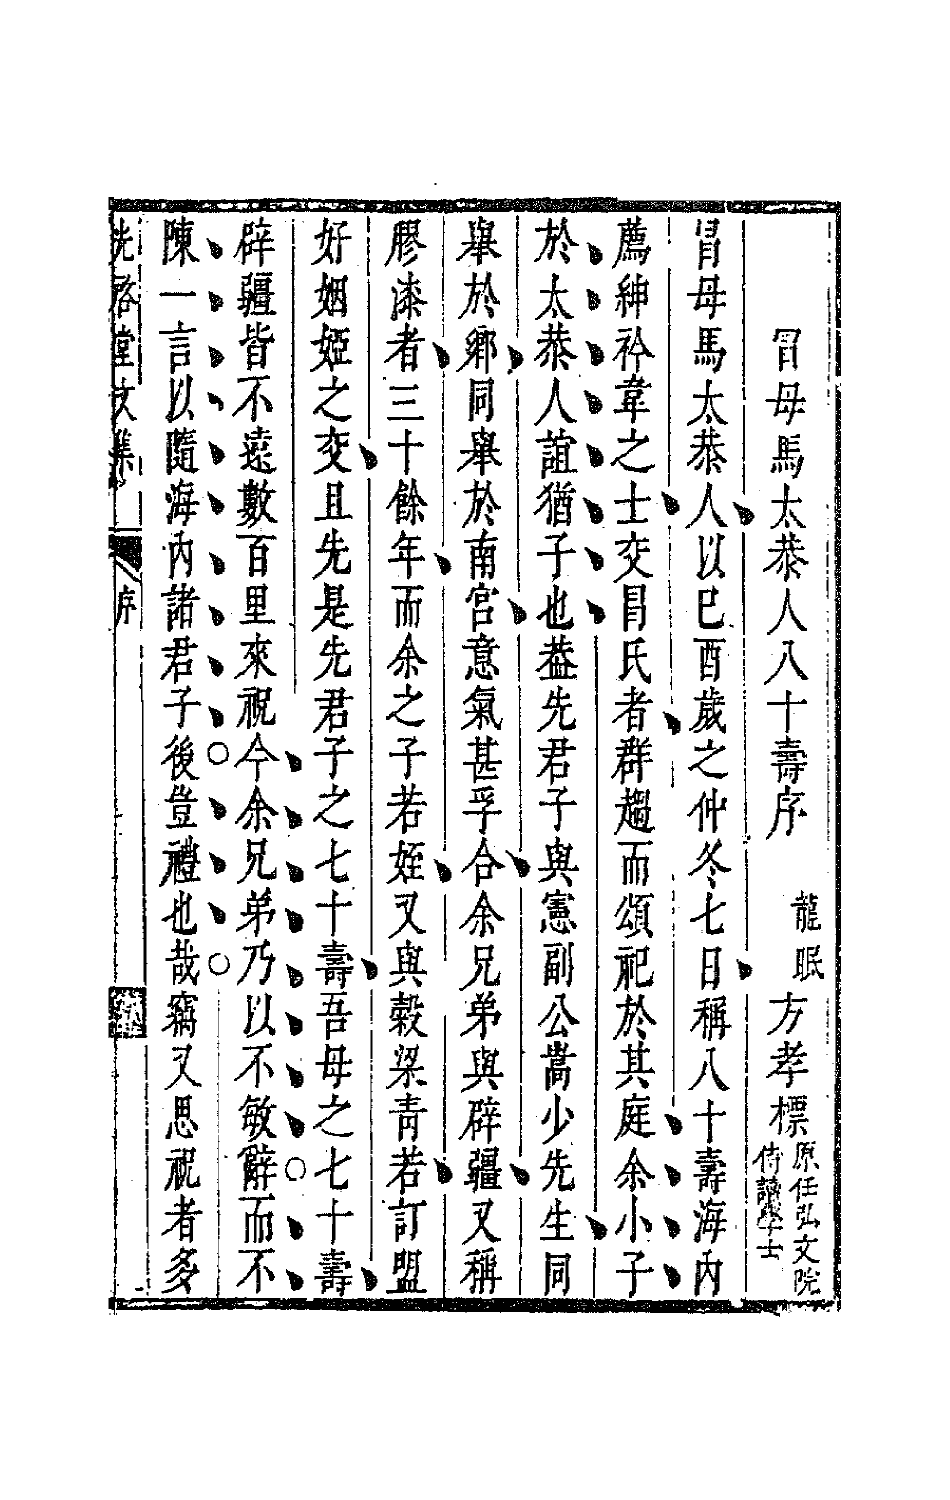 冒母馬太恭人八十壽序 龍眠方孝標 原任弘文院侍讀學士
冒母馬太恭人以巳酉歲之仲冬七日稱八十壽海內
薦紳衿韋之士交冒氏者群趨而頌祀於其庭余小子
於太恭人誼猶子也葢先君子與憲副公嵩少先生同
舉於鄉同舉於南宮意氣甚孚合余兄弟與辟疆又稱
膠漆者三十餘年而余之子若姪又與榖梁青若訂盟
好姻婭之交且先是先君子之七十壽吾母之七十壽
辟疆皆不遠數百里來祝今余兄弟乃以不敏辭而不
陳一言以隨海內諸君子後豈禮也哉竊又思祝者多
光啓堂文集 序